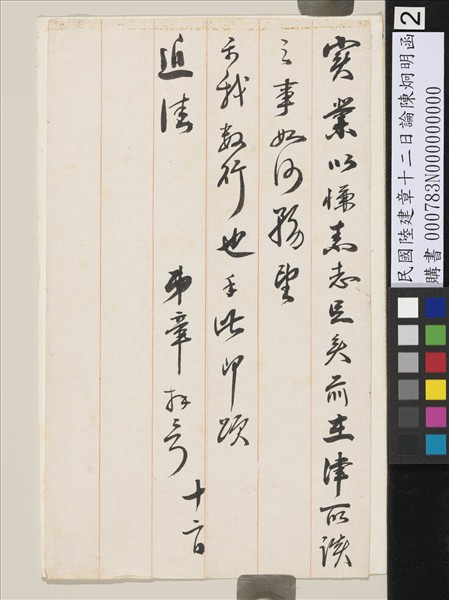 實業以慊素志足矣前在津所談
之事如何務望
示我數行也手此即頌
近佳
弟章拜言
十二日
民國陸建章十二日論陳炯明函
購書 000783N000000000
2